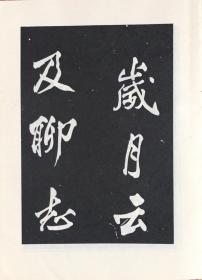 歲月云
及聊志